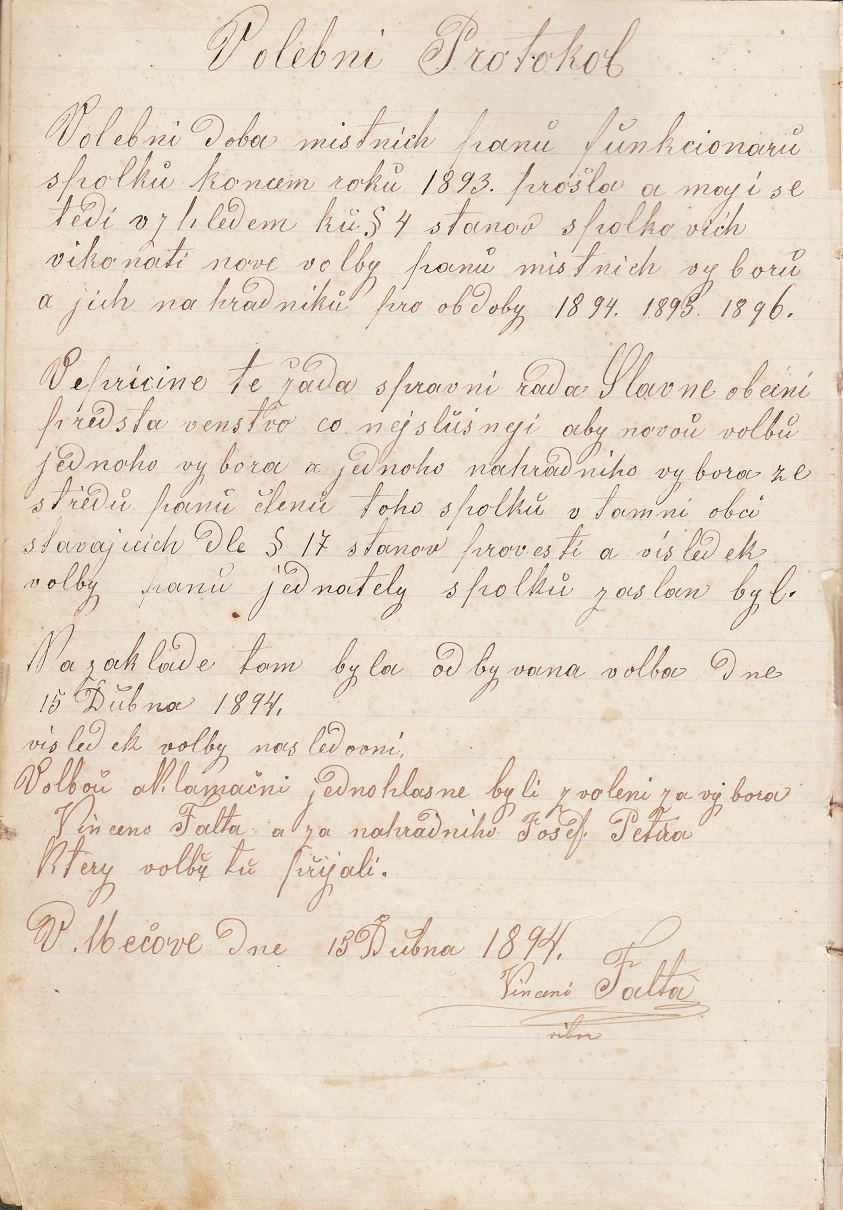 Volebni Protokol
Volebni Doba mistnich panů funkcionarů
spolků koncem roků 1893. prošla a maji se
tedi vzhledem ků § 4 stanov spolkovich
vikonati nove volby panů mistnich vyborů
a jich nahradniků pro obdoby 1894. 1895. 1896.
Vepřičine te žada spravni rada Slavne obecni
předsta venstvo co nejslůšneji aby novoů volbů
jednoho vybora a jednoho nahradniho vybora ze
středů panů členů toho spolků v tamni obci
stavajicich dle § 17 stanov provesti a visledek
volby panů jednately spolků zaslan byl.
Na zaklade tom byla odbyvana volba dne
15 Důbna 1894.
visledek volby nasledovni.
Volboů aklamačni jednohlasne byli zvoleni za vybora
Vincenc Falta a za nahradniho Josef Petira
Ktery volbů tů přijali.
V Mečove Dne 15 Důbna 1894.
Vincenc Falta